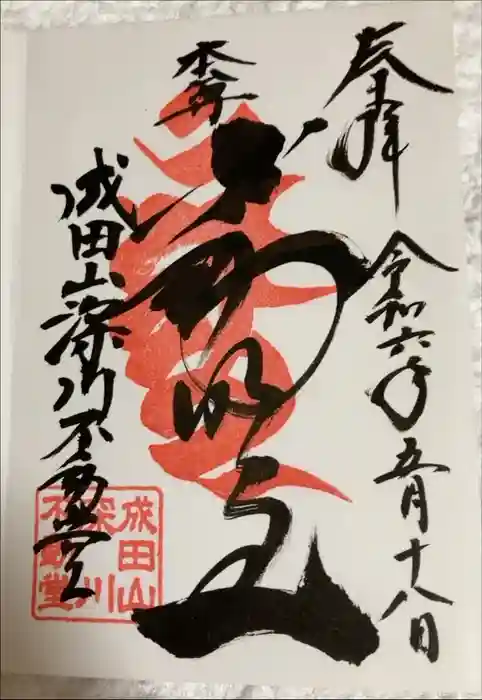 奉拝
令和六年五月十八日
本尊
不動明王
成田山深川不動堂
成田山
深川
不動堂